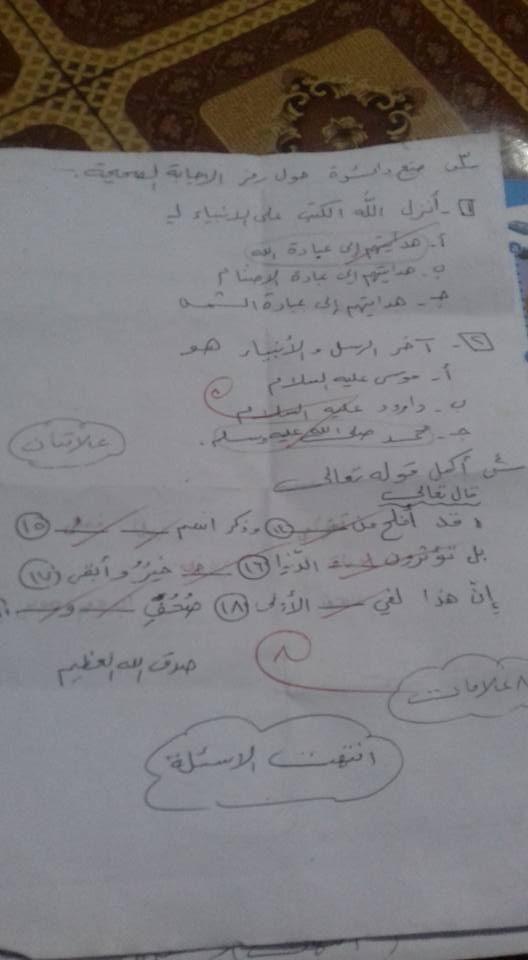 س٣ ضع دائرة حول رمز الاجابة الصحيحة.
١- أنزل الله الكتب على الانبياء لـ
أ- هدايتهم إلى عبادة الله
ب- هدايتهم إلى عبادة الاصنام
جـ- هدايتهم إلى عبادة الشمس
٢- آخر الرسل والأنبياء هو
أ- موسى عليه السلام
ب- داوود عليه السلام
جـ- محمد صلى الله عليه وسلم.
علامتان
س٤ أكمل قوله تعالى
قال تعالى
قد أفلح من (١٤) وذكر اسم (١٥)
بل تؤثرون الدنيا (١٦) خيرٌ وأبقى (١٧)
إنّ هذا لفي الأولى (١٨) صُحُفِ و
صدق الله العظيم
٨
٨ علامات
انتهت الاسئلة